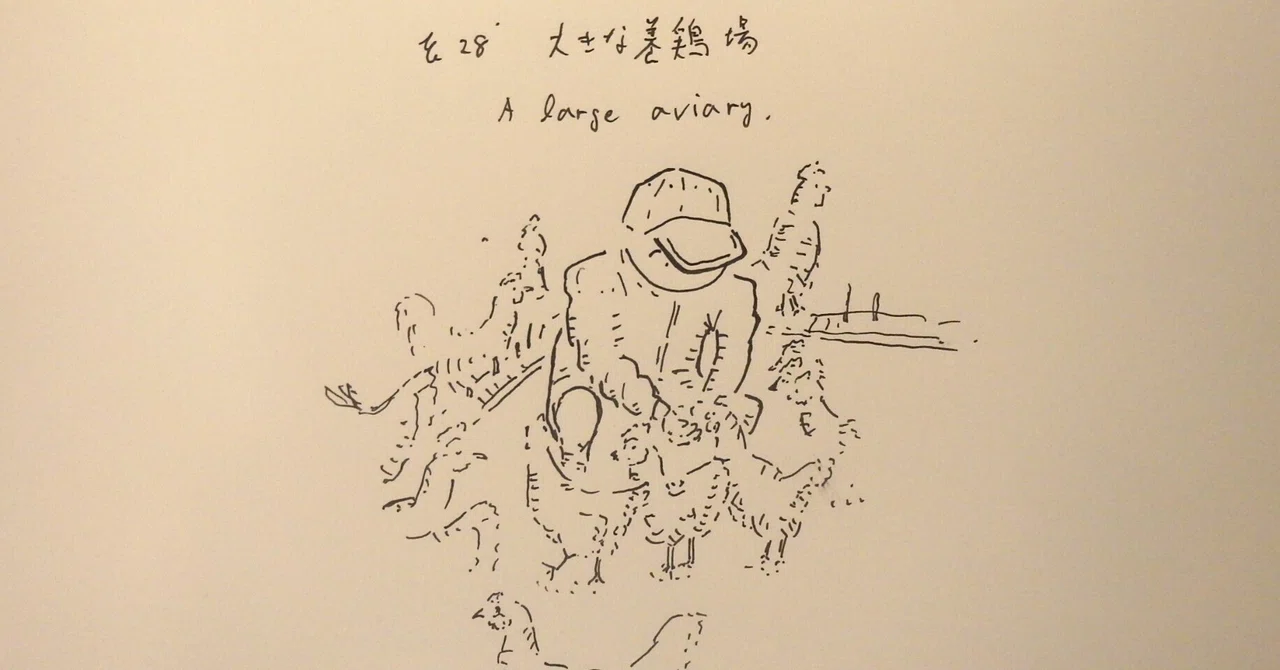 28 大きな養鶏場
A large aviary.